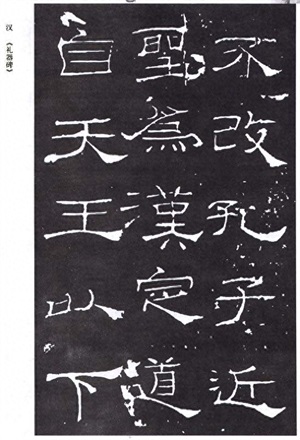 不改孔子近
聖為漢定道
自天王以下
汉《礼器碑》